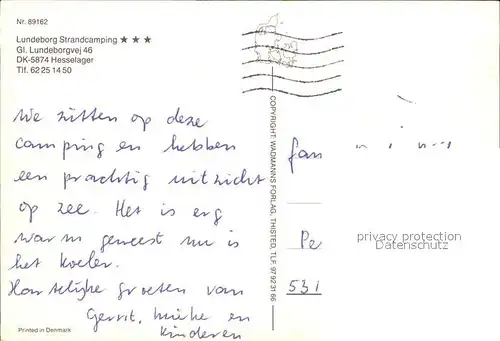 Nr. 89162
Lundeborg Strandcamping ★ ★ ★
Gl. Lundeborgvej 46
DK-5874 Hesselager
Tlf. 62 25 14 50
We zitten op deze
camping en hebben
een prachtig uitzicht
op zee. Het is erg
warm geweest nu is
het koeler.
Hartelijke groeten van
Gerrit, mieke en
kinderen
Printed in Denmark
COPYRIGHT: WADMANNS FORLAG, THISTED, TLF. 97 92 31 66
fan
Pe
531
privacy protection
Datenschutz